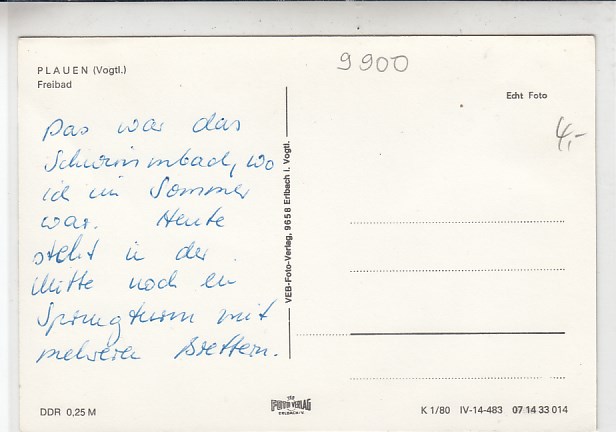 PLAUEN (Vogtl.)
Freibad
9900
Echt Foto
4,-
Das war das
Schwimmbad, wo
ich im Sommer
war. Heute
steht in der
Mitte noch ein
Sprungturm mit
mehreren Brettern.
VEB-Foto-Verlag, 9658 Erlbach i. Vogtl.
FOTO VERLAG
ERLBACH/V.
DDR 0,25 M
K 1/80 IV-14-483 07 14 33 014